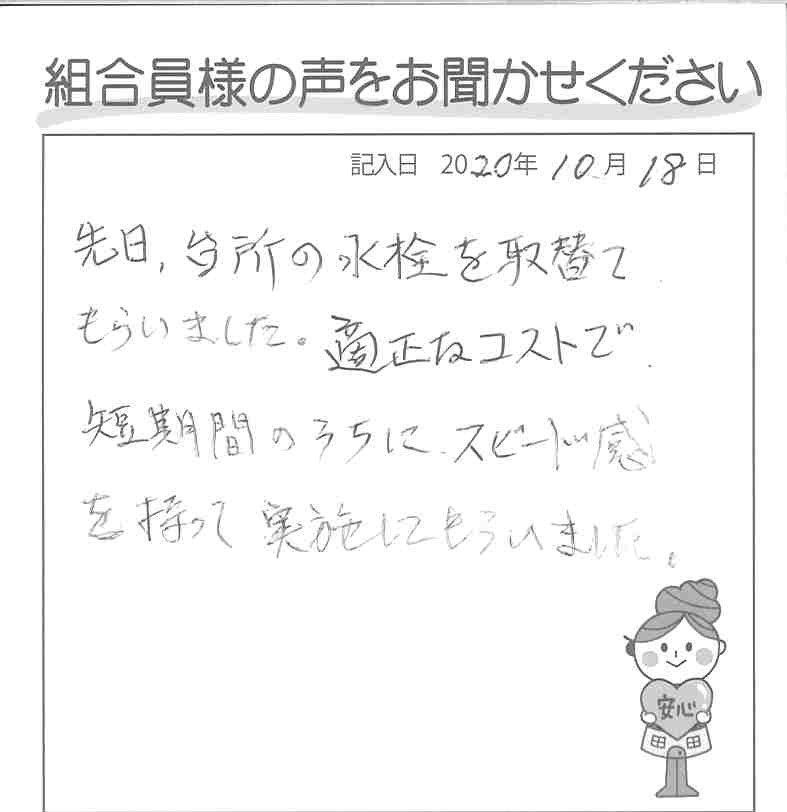 組合員様の声をお聞かせください
記入日 2020年 10月 18日
先日,台所の水栓を取替て
もらいました。適正なコストで
短期間のうちに、スピード感
を持って実施してもらいました。
安心